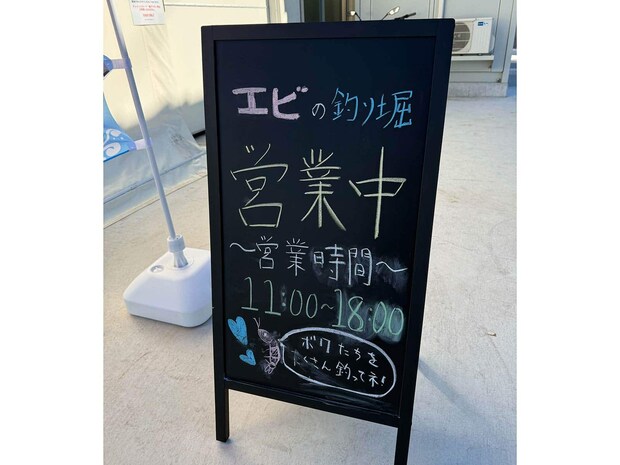 エビの釣り堀
営業中
〜営業時間〜
11:00〜18:00
ボクたちを
たくさん釣ってネ!